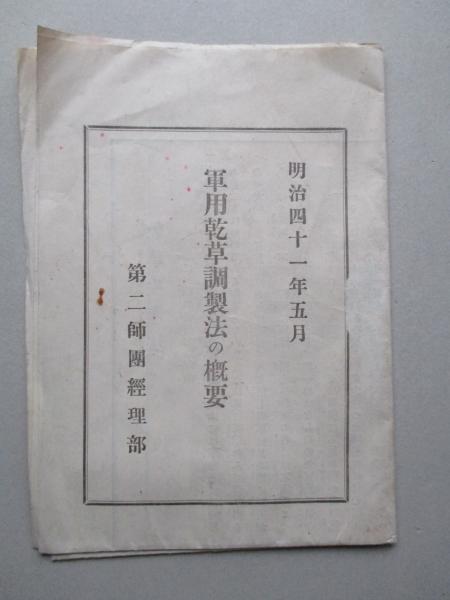 明治四十一年五月
軍用乾草調製法の概要
第二師團經理部